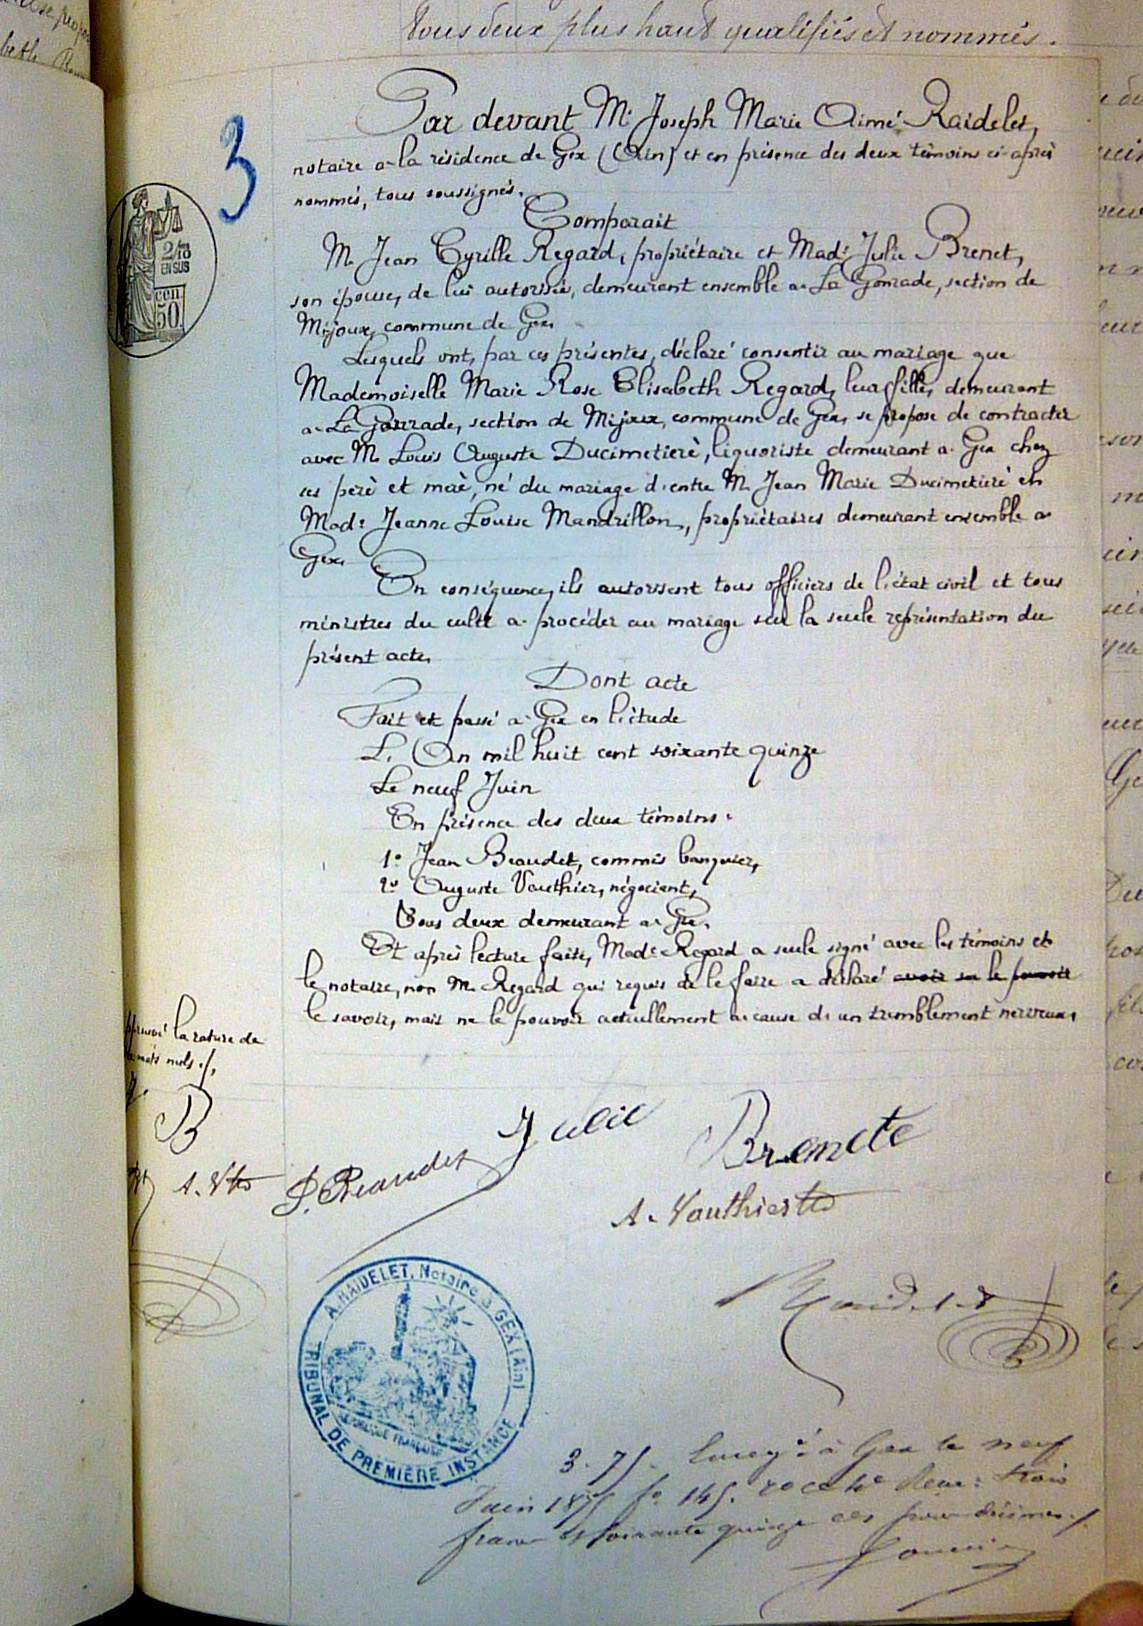 tous deux plus haut qualifiés et nommés.
3
Par devant Me Joseph Marie Aimé Raidelet,
notaire à la résidence de Gex (Ain) et en présence des deux témoins ci-après
nommés, tous soussignés.
Comparait
M. Jean Cyrille Regard, propriétaire et Made Julie Brenet,
son épouse, de lui autorisée, demeurant ensemble à La Gonrade, section de
Mijoux, commune de Gex.
Lesquels ont, par ces présentes, déclaré consentir au mariage que
Mademoiselle Marie Rose Elisabeth Regard, leur fille, demeurant
à La Gonrade, section de Mijoux, commune de Gex, se propose de contracter
avec M. Louis Auguste Ducimetière, liquoriste demeurant à Gex chez
ses père et mère, né du mariage d'entre M. Jean Marie Ducimetière et
Made Jeanne Louise Mandrillon, propriétaires demeurant ensemble à
Gex.
En conséquence, ils autorisent tous officiers de l'état civil et tous
ministres du culte à procéder au mariage sur la seule représentation du
présent acte.
Dont acte
Fait et passé à Gex en l'étude
L'An mil huit cent soixante quinze
Le neuf Juin
En présence des deux témoins:
1o Jean Beaudet, commis banquier,
2o Auguste Vauthier, négociant,
Tous deux demeurant à Gex.
Et après lecture faite, Made Regard a seule signé avec les témoins et
le notaire, non M. Regard qui requis de le faire a déclaré avoir su le pouvoir
le savoir, mais ne le pouvoir actuellement à cause d'un tremblement nerveux.
la rature de
mots nuls ./.
B
A. Vter
Julie Brenete
J. Beaudet
A. Vauthier
Raidelet
2/10
EN SUS
cen
50.
A. RAIDELET, Notaire à GEX (Ain)
TRIBUNAL DE PREMIÈRE INSTANCE
RÉPUBLIQUE FRANÇAISE
3.75. Enregé à Gex le neuf
Juin 1875 fo 145. ro co 4e Reçu: trois
francs soixante quinze ces pour décimes ./.